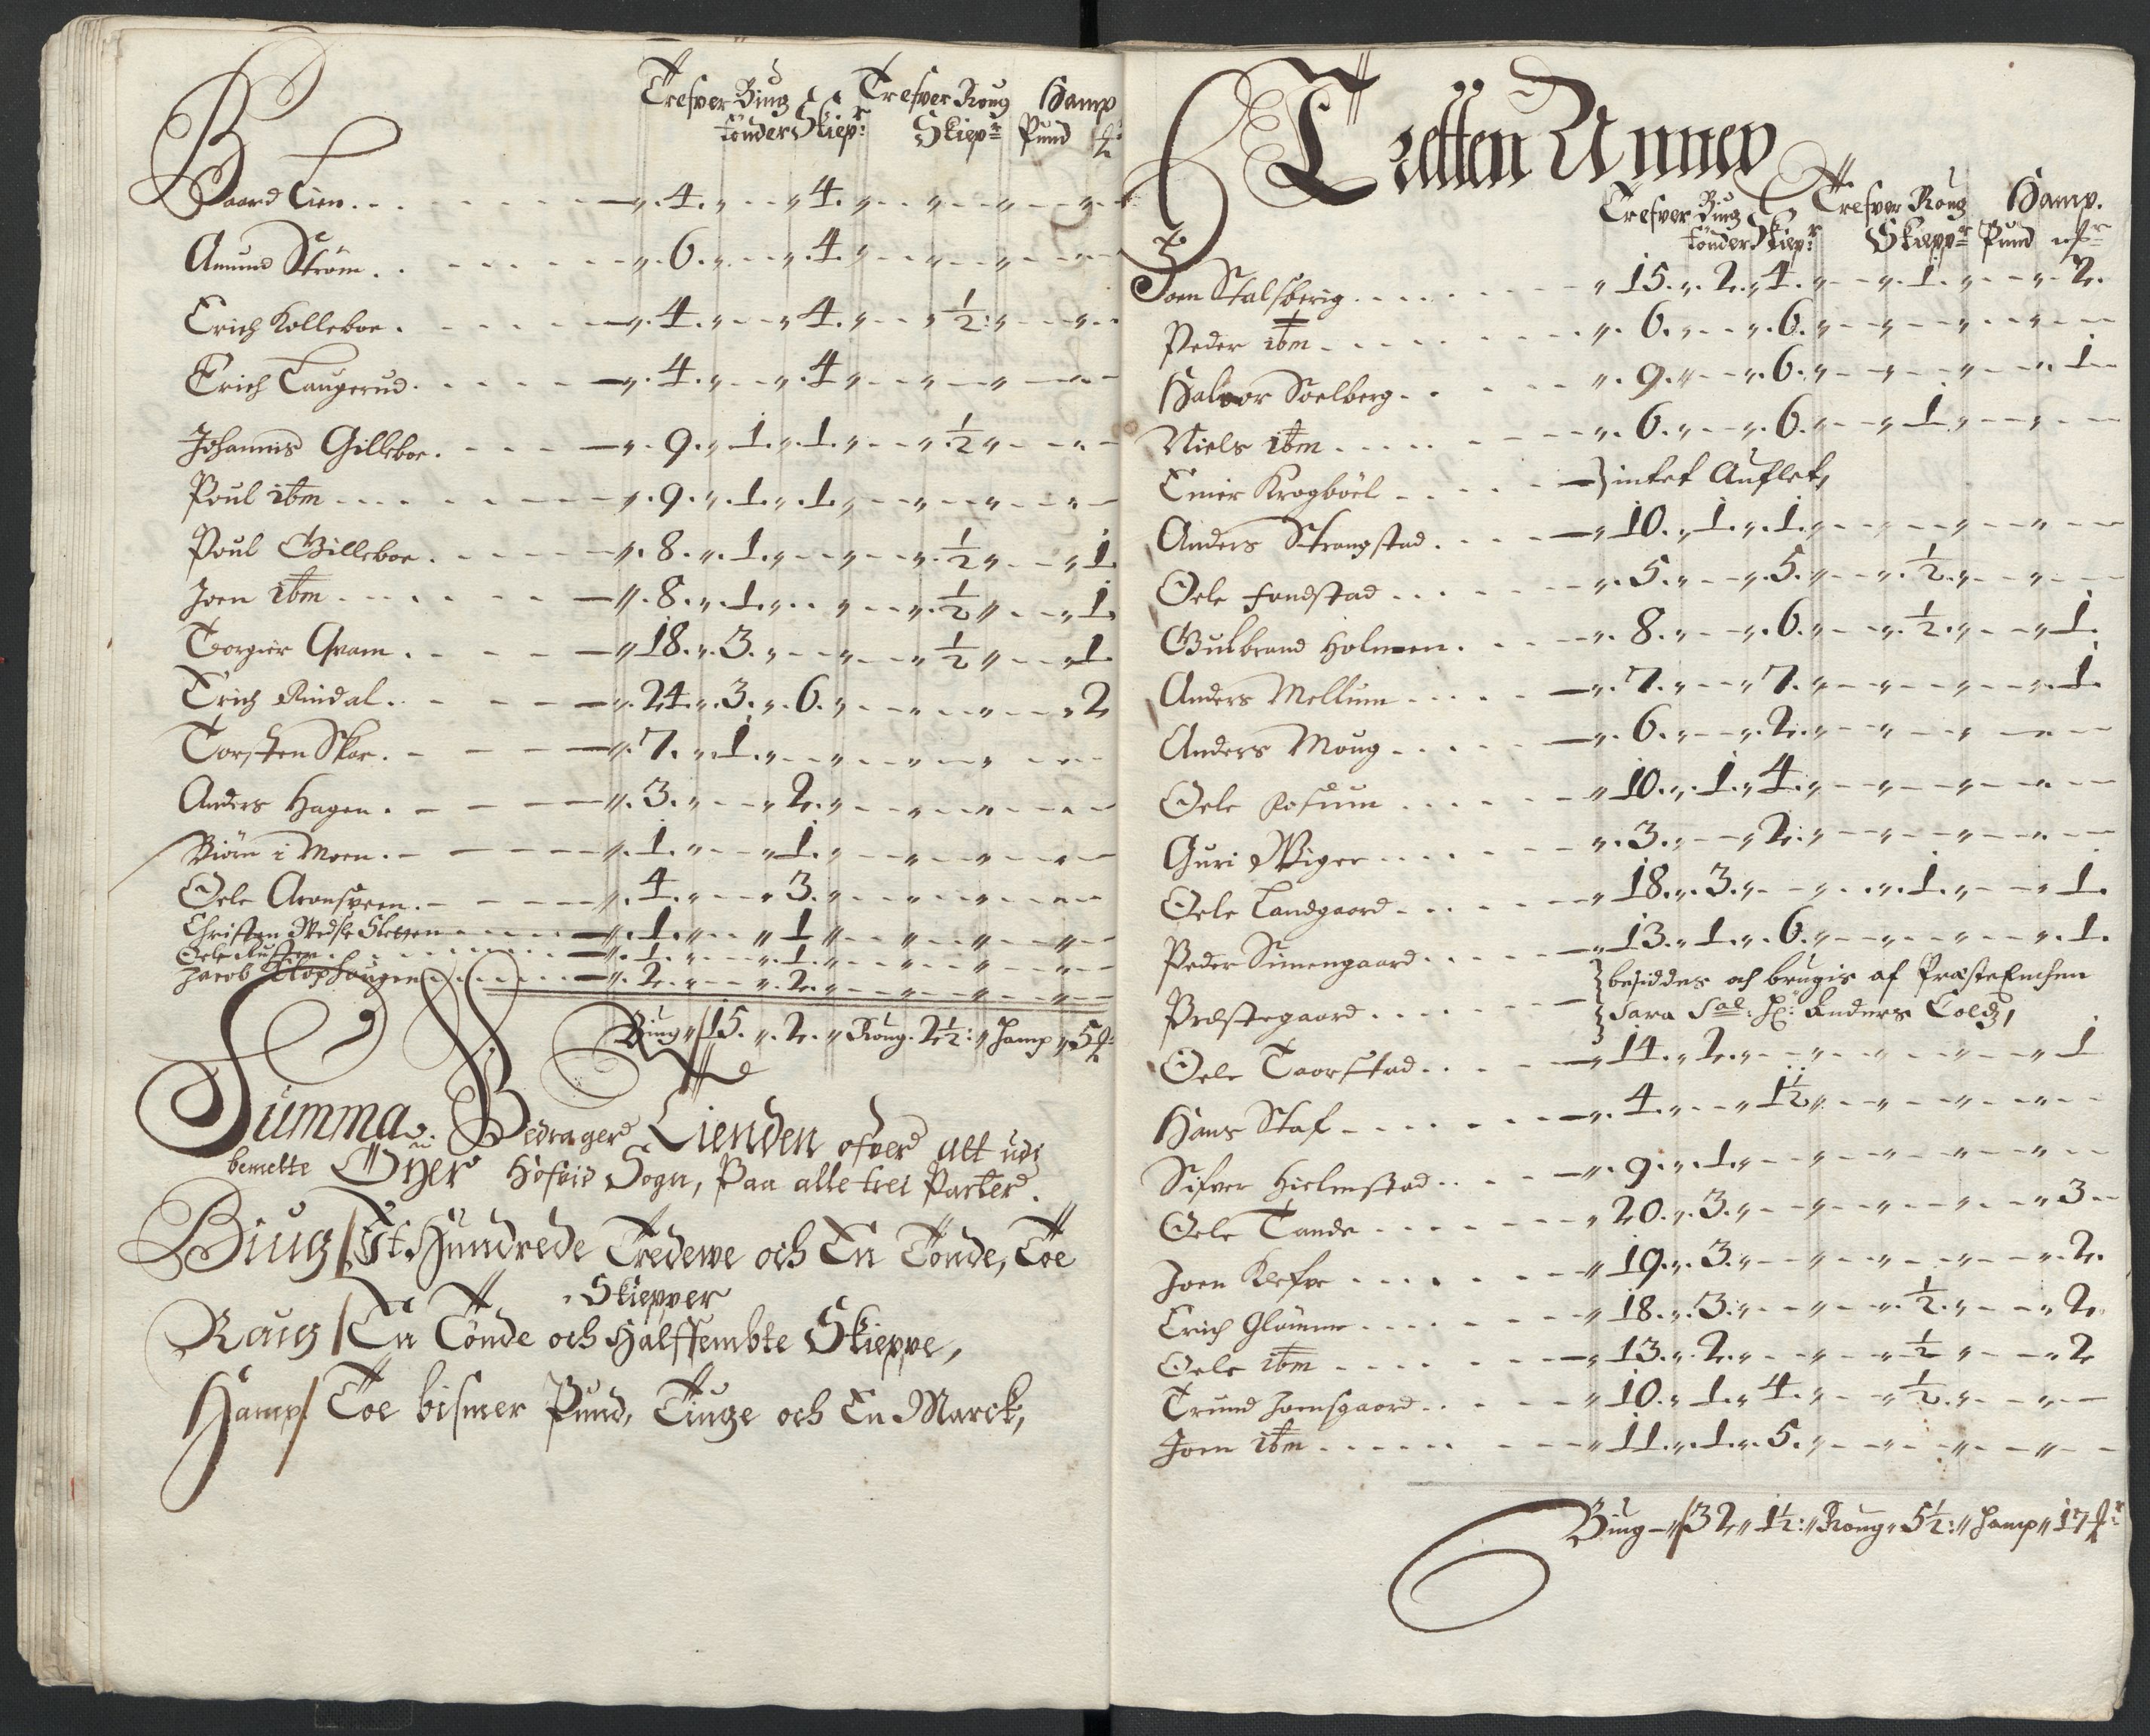 Trefver Biug Trefver Roug Hamp
tönder Skiepr: Skiepr Pund
Baard Lien . . . 4 . 4 .
Amund Ström . . 6 . 4 .
Erich Kolleboe . 4 . 4 . ½ .
Erich Taugerud . 4 . 4
Johannis Gilleboe . 9 . 1 . 1 . ½
Poul ibm . . . 9 . 1 . 1 .
Poul Gilleboe . 8 . 1 . ½ . 1
Joen ibm . . . 8 . 1 . ½ . 1
Torgier Qvam . . 18 . 3 . ½ . 1
Erich Rindal . . 24 . 3 . 6 . 2
Torsten Skar . 7 . 1 .
Anders Hagen . 3 . 2 .
Biörn i Moen . 1 . 1 .
Oele Aronsveen . 4 . 3 .
Christen Sletten . 1 . 1
Oele . 1 . 1 .
Jacob Klophaugen . 2 . 2 .
Biug 15 . 2 . Roug . 2½ : Hamp 5
Summa Bedrager Tienden ofver alt udi
bemelte Öyer Hofvid Sogn, Paa alle trei Parter .
Biug / Et Hundrede Tredeve och En Tönde, Toe
Skiepper
Roug / En Tönde och Halffembte Skieppe,
Hamp / Toe bismer Pund, Tiuge och En Marck,
Tretten Annex
Trefver Biug Trefver Roug Hamp.
tönder Skiepr: Skieppr Pund
Joen Stalsberig . . . 15 . 2 . 4 . 1 . 2 .
Peder ibm . . . 6 . 6 .
Halvor Soelberg . . 9 . 6 . 1
Niels ibm . . . 6 . 6 . 1
Einer Krogböel . . intet Auflet,
Anders Strangstad . . 10 . 1 . 1 .
Oele Fondstad . . . 5 . 5 . ½ .
Gulbrand Holmen . . 8 . 6 . ½ . 1 .
Anders Mellum . . . 7 . 7 . 1 .
Anders Moug . . . 6 . 2 .
Oele Kosum . . . 10 . 1 . 4 .
Guri Wiger . . . 3 . 2 .
Oele Landgaard . . . 18 . 3 . 1 . 1 .
Peder Simengaard . . . 13 . 1 . 6 . 1 .
Præstegaard . . . . besiddes och brugis af PræsteEnchen
Sara Sal: Hr: Anders Coldz,
Oele Taarstad . . . 14 . 2 . 1
Hans Staf . . . 4 . 1½
Sifver Hielmstad . . . 9 . 1 .
Oele Tande . . . 20 . 3 . 3
Joen Klefve . . . 19 . 3 . 2 .
Erich Glömme . . . 18 . 3 . ½ . 2
Oele ibm . . . 13 . 2 . ½ . 2
Trund Joensgaard . . 10 . 1 . 4 . ½ .
Joen ibm . . . 11 . 1 . 5 .
Biug 32 1½ : Roug 5½ : Hamp 17